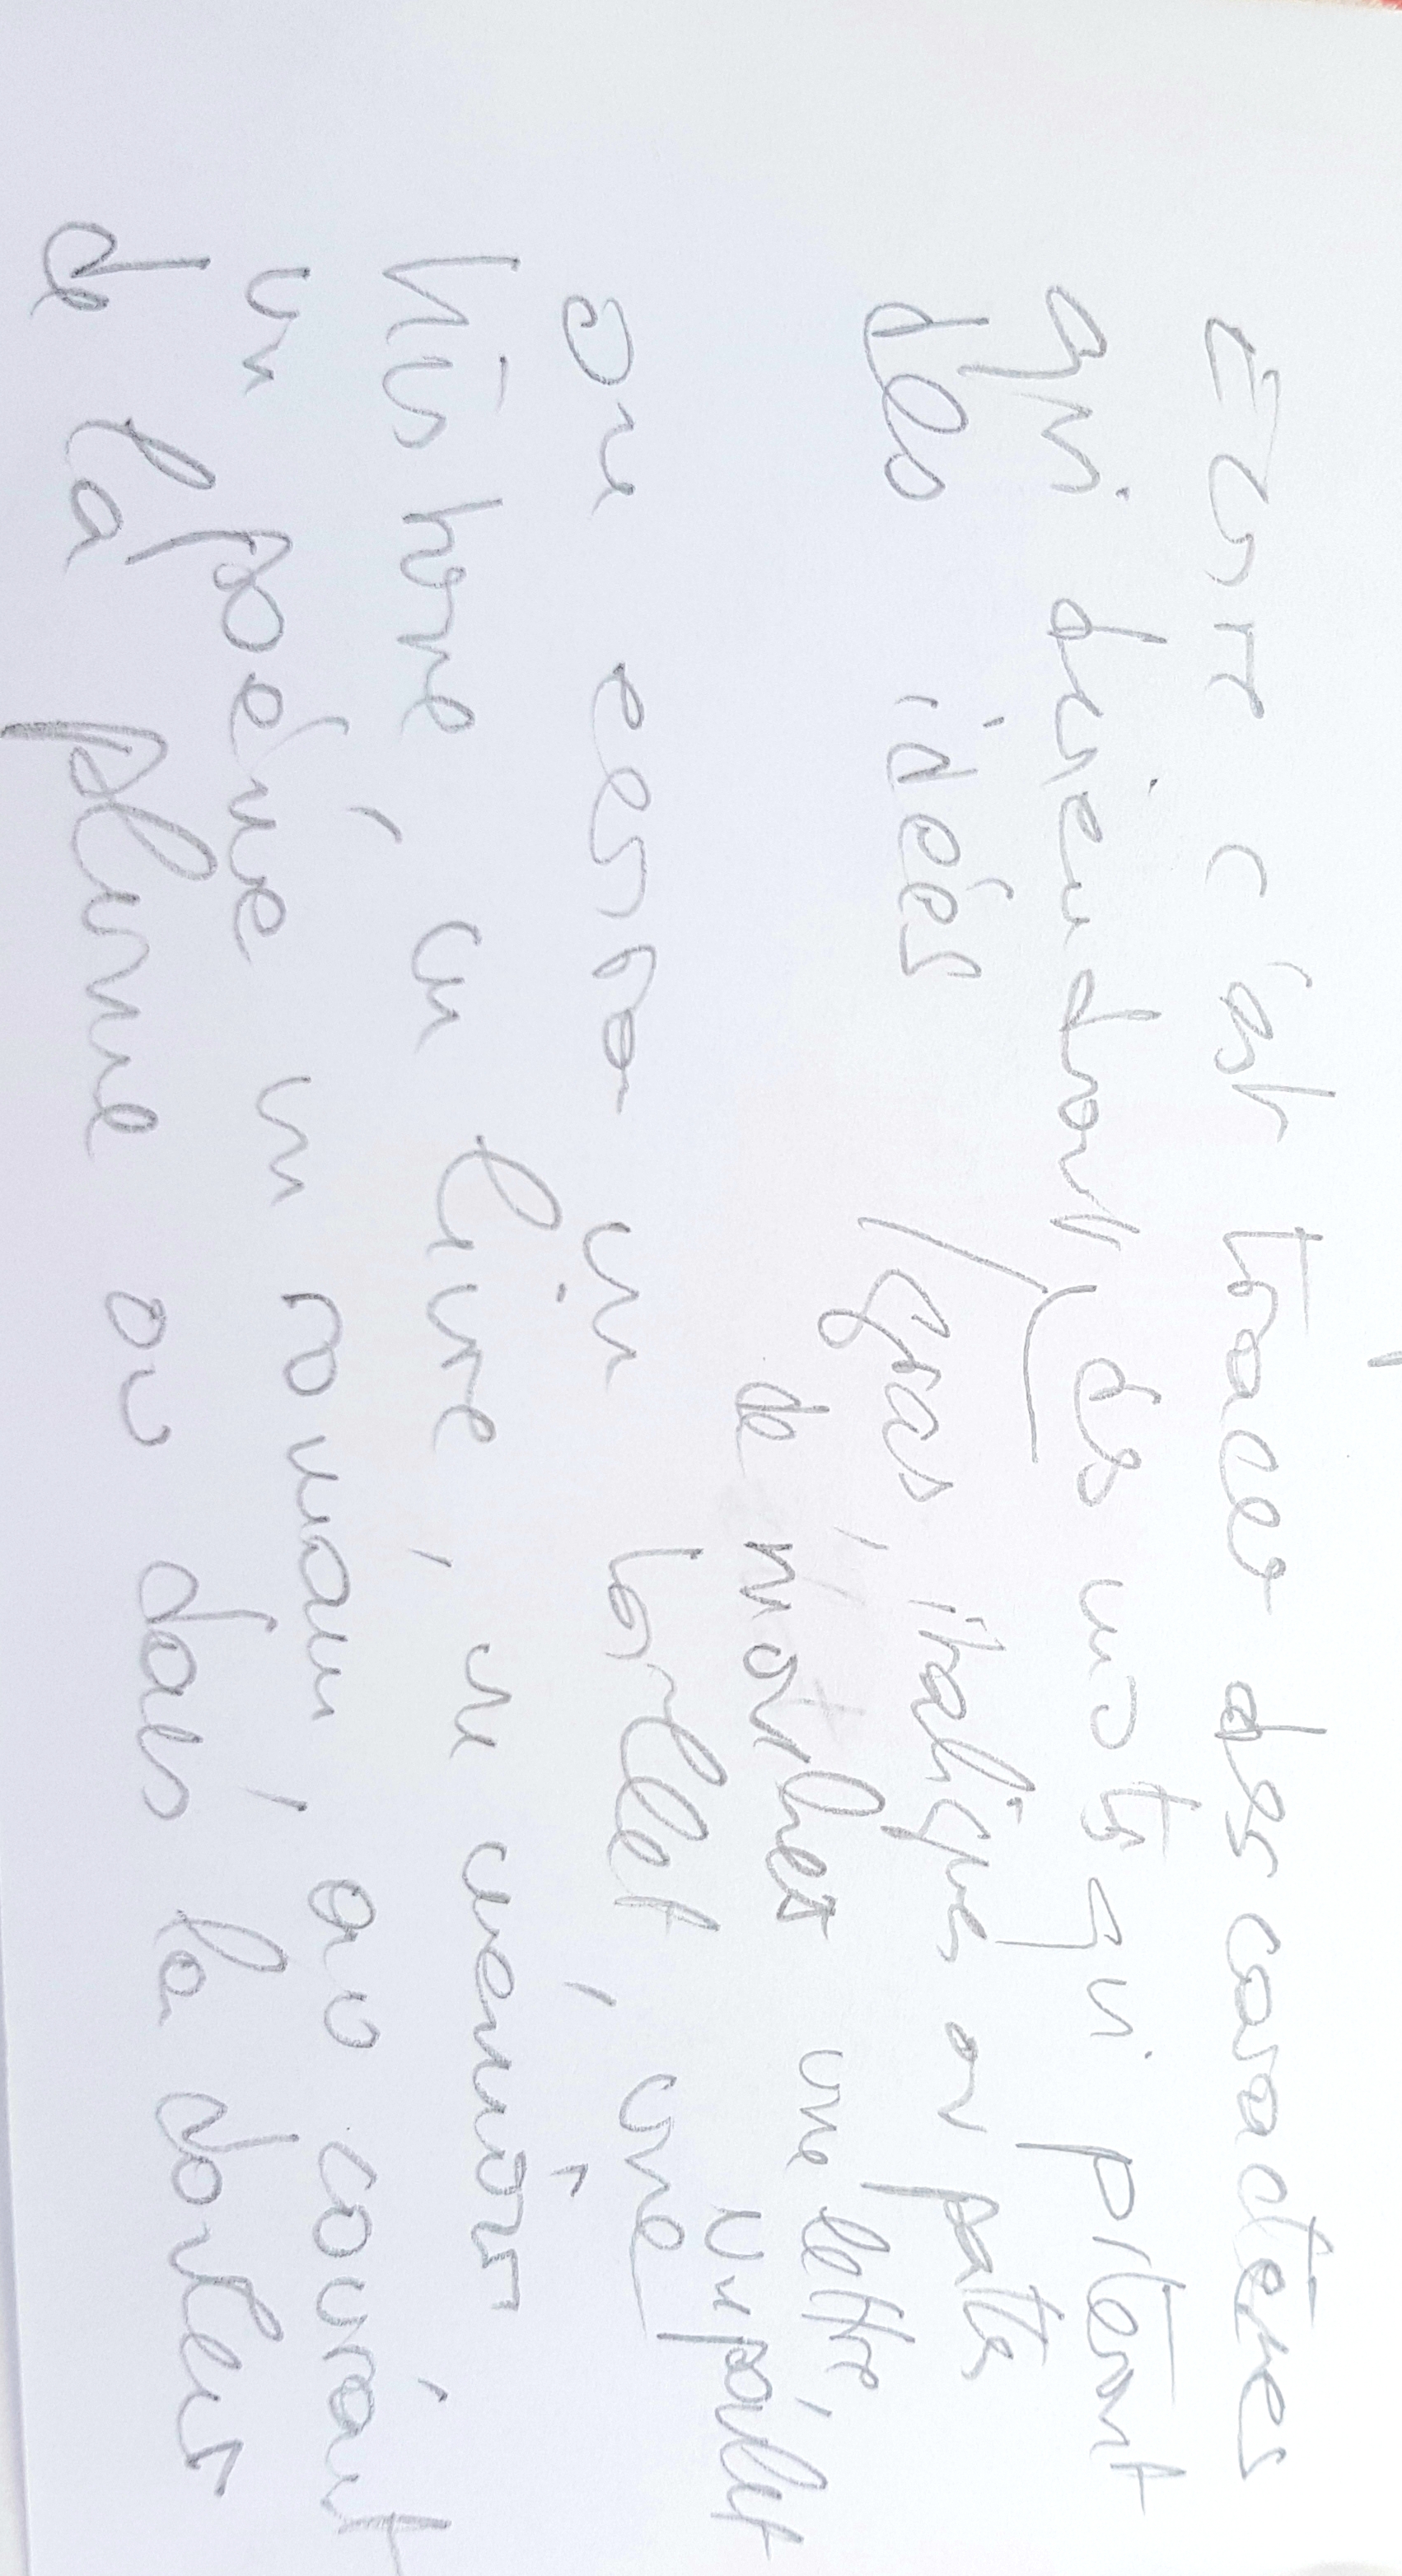 Ecrire c'est tracer des caractères
qui deviendront des mots qui piteront
des idées / gras, italiques ou pattes
de mouches une lettre, un pamphlet
On écrira un billet, une
histoire, un livre, un mémoire,
un poéme un roman, au courant
de la plume ou dans la douleur